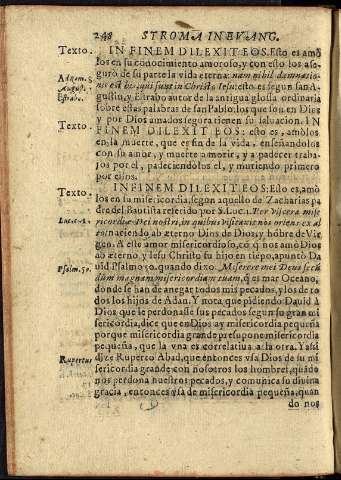 248 STROMA IN EVANG.
Texto. IN FINEM DILEXIT EOS. Esto es amó
los en su conocimiento amoroso, y con esto los ase
guró de su parte la vida eterna: nam nihil damnatio
nis est his qui sunt in Christo Iesu: esto es segun san A-
gustin, y Estrabo autor de la antigua glossa ordinaria
sobre estas palabras de san Pablo. los que son en Dios
y por Dios amados segora tienen su saluacion. IN
Texto. FINEM DILEXIT EOS: esto es, amòlos
en la muerte, que es fin de la vida, enseñandolos
con su amor, y muerte a morir, y a padecer traba
jos por el, padeciendolos el, y muriendo primero
por ellos.
Texto. IN FINEM DILEXIT EOS: Esto es, amò
los en su misericordia, segun aquello de Zacharias pa
dre del Bautista referido por S. Luc. 1. Per viscera mise
ricordiæ Dei nostri, in quibus visitauit nos oriens ex al
to: naciendo ab æterno Dios de Dios, y hõbre de Vir
gen. A este amor misericordioso, cõ q̃ nos amò Dios
ab æterno, y Iesu Christo su hijo en tiẽpo, apuntò Da
Psalm. 50. uid Psalmo 50. quando dixo. Miserere mei Deus secũ
dum magnam misericordiam tuam, q̃ es mar Oceano,
donde se han de anegar todos mis pecados, y los de to
dos los hijos de Adan. Y nota, que pidiendo Dauid A
Dios que le perdonasse sus pecados segun su gran mi
sericordia, dice que en Dios ay misericordia pequeña
porque misericordia grande presupone misericordia
pequeña, que la vna es correlatiua a la otra. Y assi
Rupertus dize Ruperto Abad, que entonces vsa Dios de su mi
sericordia grande con nosotros los hombres, quãdo
nos perdona nuestros pecados, y comunica su diuina
gracia, entonces vsa de misericordia pequeña, quan
do nos